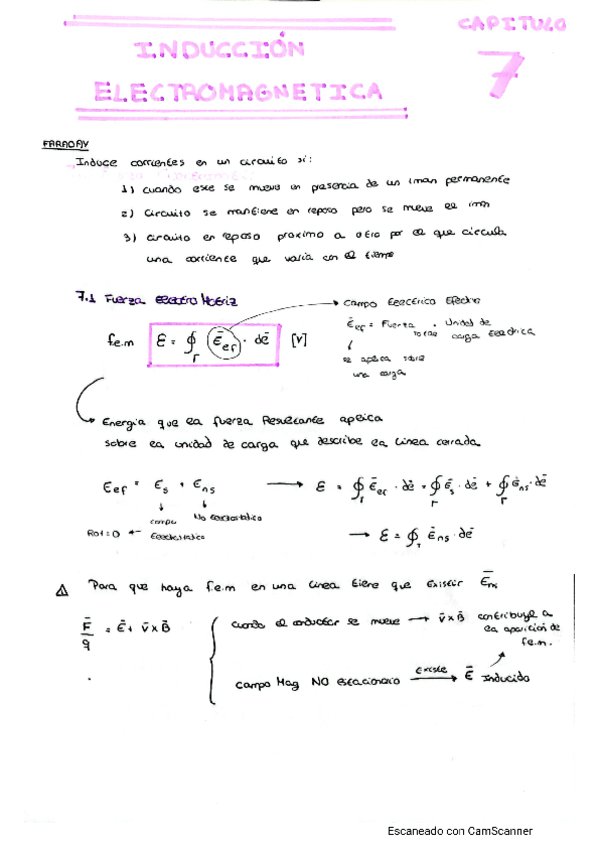 CAPITULO
7
INDUCCIÓN
ELECTROMAGNETICA
FARADAY
Induce corrientes en un circuito si:
1) cuando este se mueve en presencia de un iman permanente
2) Circuito se mantiene en reposo pero se mueve el iman
3) circuito en reposo proximo a otro por el que circula
una corriente que varia con el tiempo
7.1 Fuerza electro Motriz
→ campo Electrico Efectivo
f.e.m ℰ = ∮Γ Ēef · dl̄ [V]
Ēef = Fuerza total · Unidad de carga Electrica
↓
se aplica sobre
una carga
Energia que la fuerza Resultante aplica
sobre la unidad de carga que describe la linea cerrada
Eef = Es + Ens → ℰ = ∮Γ Ēef · dl̄ = ∮Γ Ēs · dl̄ + ∮Γ Ēns · dl̄
campo No electrostatico
Rot=0 ← Electrostatico
→ ℰ = ∮Γ Ēns · dl̄
⚠ Para que haya f.e.m en una linea tiene que existir Ēns
F̄/q = Ē + v̄ x B̄
cuando el conductor se mueve → v̄ x B̄ contribuye a
la aparicion de
f.e.m.
campo Mag NO Estacionario Existe → Ē Inducido
Escaneado con CamScanner